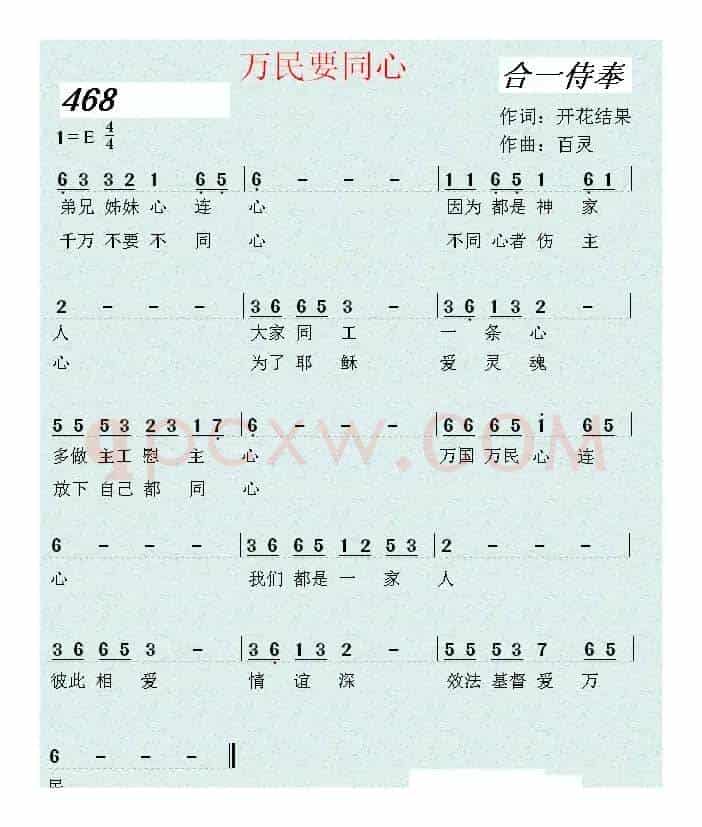 万民要同心
合一侍奉
468
1=E 4/4
作词：开花结果
作曲：百灵
6 3 3 2 1 6 5 | 6 - - - | 1 1 6 5 1 6 1 |
弟兄 姊妹 心 连 心 因为 都是 神 家
千万 不要 不 同 心 不同 心者 伤 主
2 - - - | 3 6 6 5 3 - | 3 6 1 3 2 - |
人 大家 同 工 一 条 心
心 为了 耶 稣 爱 灵 魂
5 5 5 3 2 3 1 7 | 6 - - - | 6 6 6 5 i 6 5 |
多做 主工 慰 主 心 万国 万民 心 连
放下 自己 都 同 心
qpcxw.COM
6 - - - | 3 6 6 5 1 2 5 3 | 2 - - - |
心 我们 都是 一 家 人
3 6 6 5 3 - | 3 6 1 3 2 - | 5 5 5 3 7 6 5 |
彼此 相 爱 情 谊 深 效法 基督 爱 万
6 - - - ‖
民